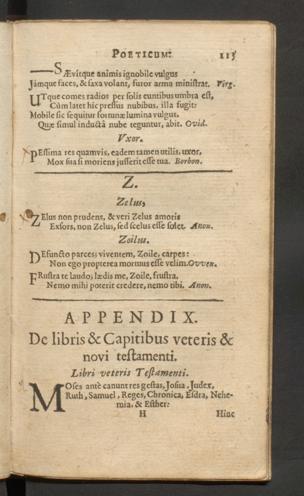 POETICUM. 115
SÆvitque animis ignobile vulgus
Jamque faces, & saxa volant, furor arma ministrat. Virg.
UTque comes radios per solis euntibus umbra est,
Cùm latet hic pressus nubibus, illa fugit:
Mobile sic sequitur fortunæ lumina vulgus.
Quæ simul inductâ nube teguntur, abit. Ovid.
Vxor.
PEssima res quamvis, eadem tamen utilis, uxor,
Mox sua si moriens jusserit esse tua. Borbon.
Z.
Zelus,
ZElus non prudens, & veri Zelus amoris
Exsors, non Zelus, sed scelus esse solet. Anon.
Zoilus.
DEfuncto parces; viventem, Zoile, carpes:
Non ego propterea mortuus esse velim. Owen.
FRustra te laudo; lædis me, Zoile, frustra,
Nemo mihi poterit credere, nemo tibi. Anon.
APPENDIX.
De libris & Capitibus veteris &
novi testamenti.
Libri veteris Testamenti.
MOses antè canunt res gestas, Josua, Judex,
Ruth, Samuel, Reges, Chronica, Esdra, Nehe-
mia, & Esther:
H Hinc